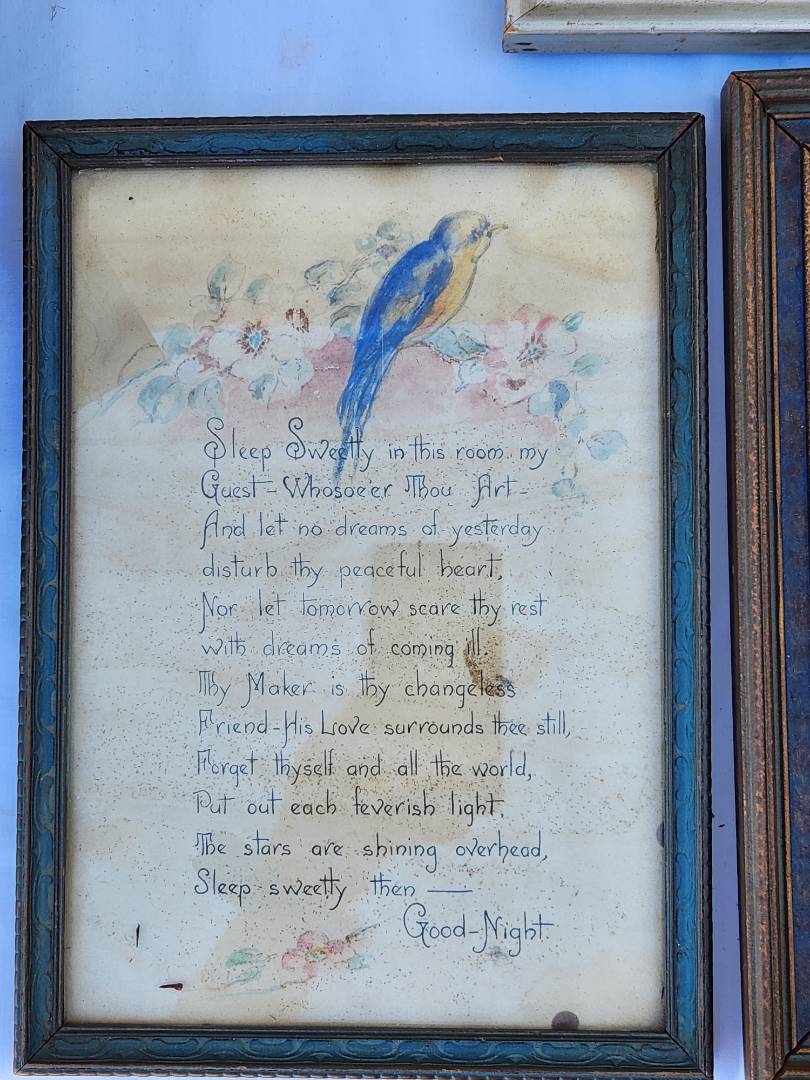 Sleep Sweetly in this room my
Guest - Whosoe'er Thou Art -
And let no dreams of yesterday
disturb thy peaceful heart,
Nor let tomorrow scare thy rest
with dreams of coming ill.
Thy Maker is thy changeless
Friend - His Love surrounds thee still,
Forget thyself and all the world,
Put out each feverish light,
The stars are shining overhead,
Sleep sweetly then —
Good-Night